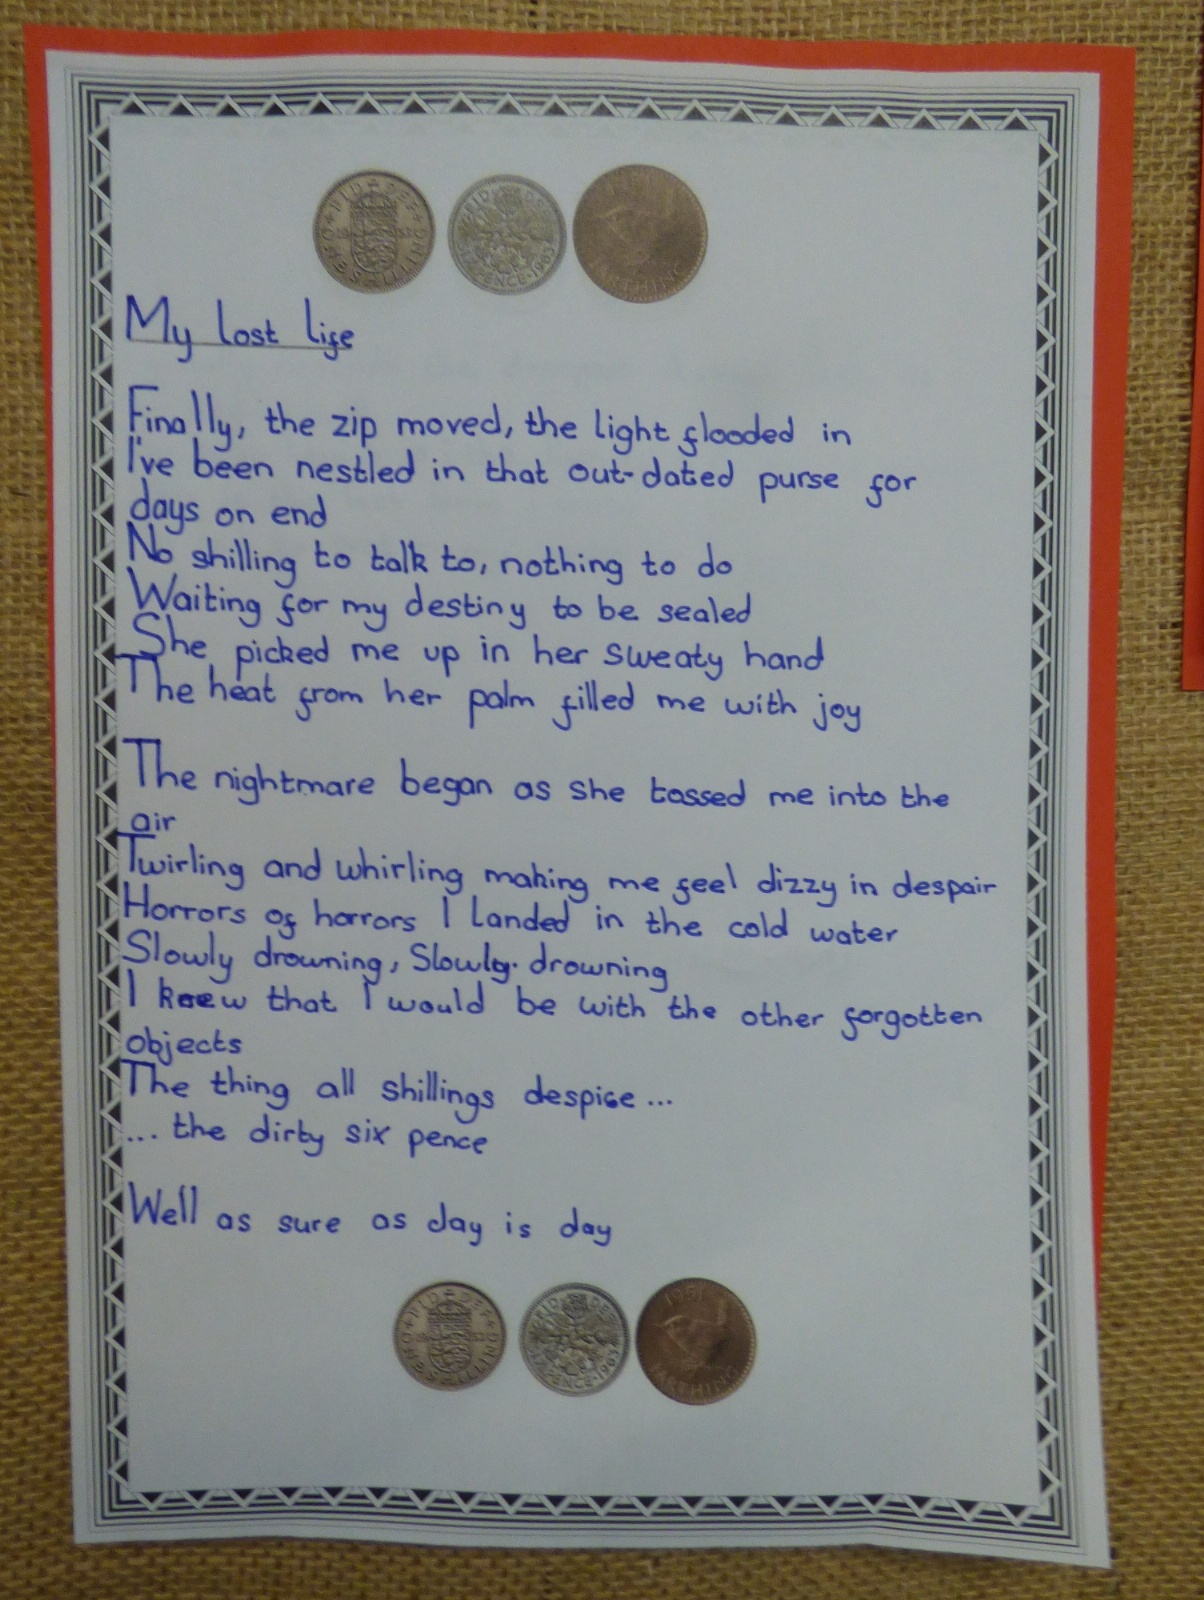 My lost life
Finally, the zip moved, the light flooded in
I've been nestled in that out-dated purse for
days on end
No shilling to talk to, nothing to do
Waiting for my destiny to be sealed
She picked me up in her sweaty hand
The heat from her palm filled me with joy
The nightmare began as she tossed me into the
air
Twirling and whirling making me feel dizzy in despair
Horrors of horrors I landed in the cold water
Slowly drowning, Slowly drowning
I knew that I would be with the other forgotten
objects
The thing all shillings despise...
... the dirty six pence
Well as sure as day is day
FARTHING
1951